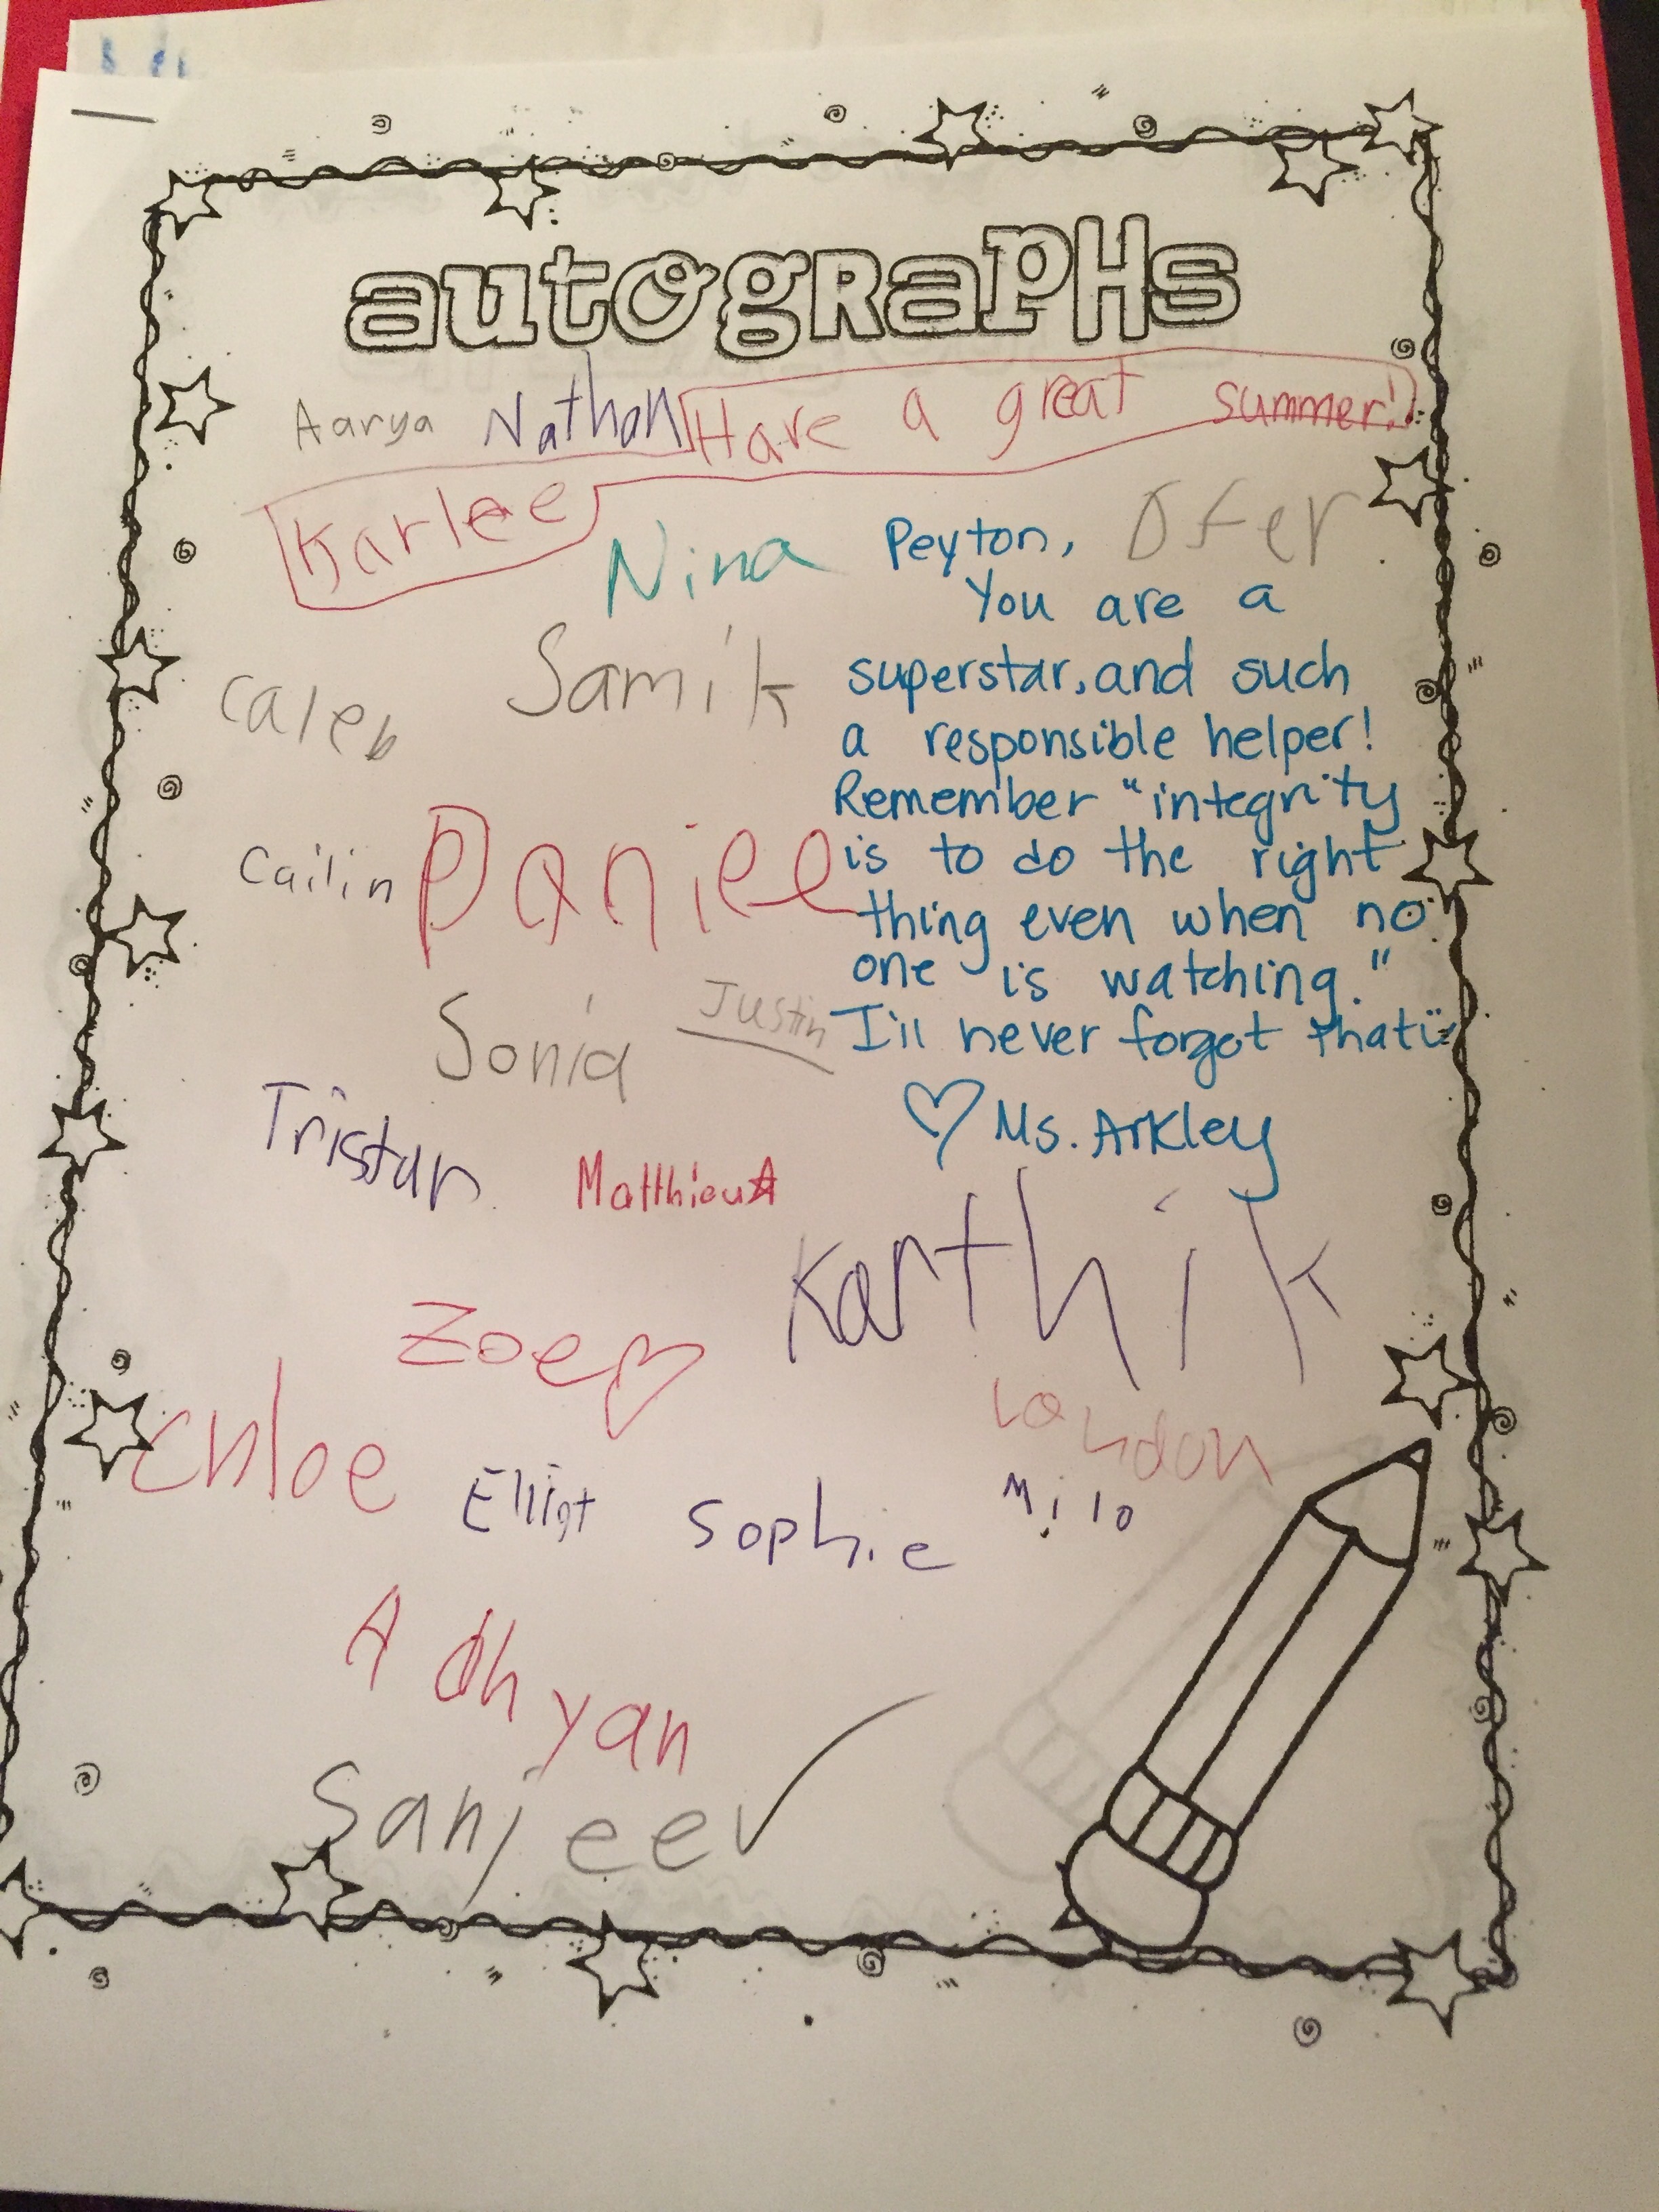 autographs
Aarya Nathan Have a great summer!
Karlee
Nina
Ofer
Peyton,
You are a
superstar, and such
a responsible helper!
Remember "integrity
is to do the right
thing even when no
one is watching."
I'll never forget that ü
♡ Ms. Arkley
Samik
Caleb
Cailin Daniel
Sonia Justin
Tristan Matthieu
Karthik
Zoe
London
Chloe Elliot Sophie Milo
Adhyan
Sanjeev